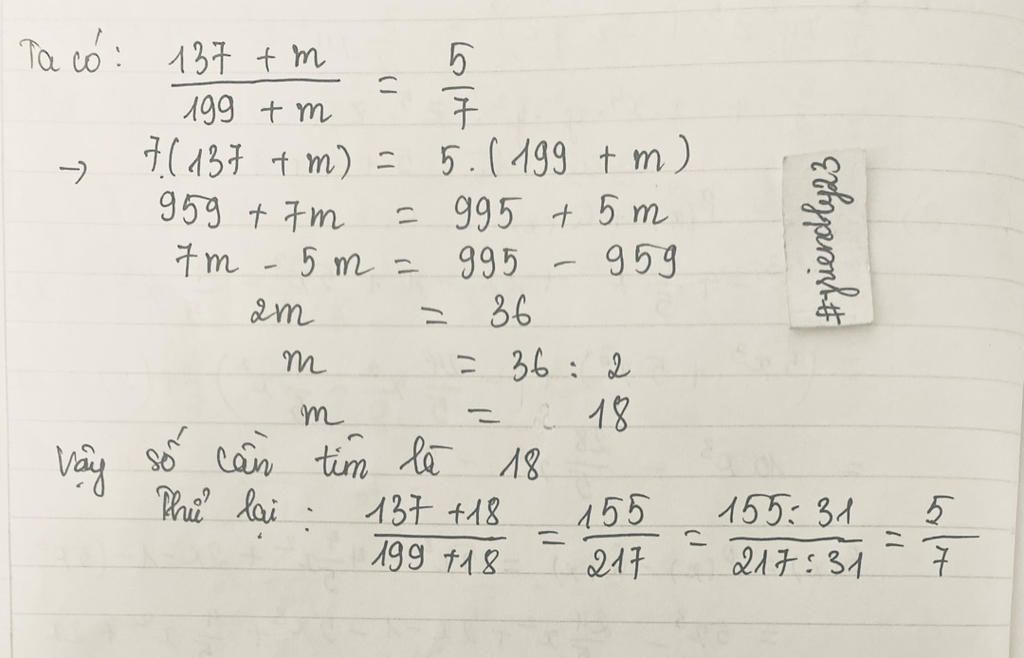 Ta có: 137 + m / 199 + m = 5 / 7
→ 7.(137 + m) = 5.(199 + m)
959 + 7m = 995 + 5m
7m - 5m = 995 - 959
2m = 36
m = 36 : 2
m = 18
Vậy số cần tìm là 18
Thử lại : 137 +18 / 199 +18 = 155 / 217 = 155: 31 / 217 : 31 = 5 / 7
#friendly23